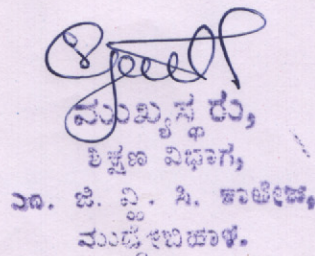 ಮುಖ್ಯಸ್ಥರು,
ಶಿಕ್ಷಣ ವಿಭಾಗ,
ಎಂ. ಜಿ. ವ್ಹಿ. ಸಿ. ಕಾಲೇಜು,
ಮುದ್ದೇಬಿಹಾಳ.